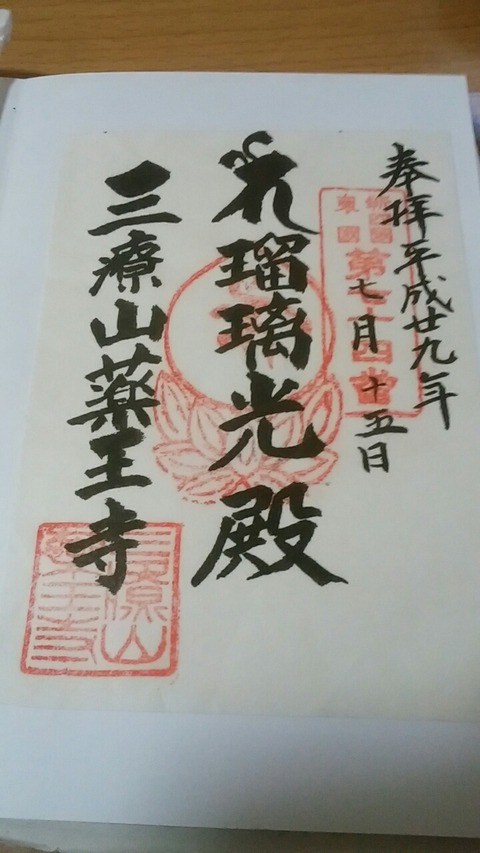 奉拝 平成廿九年
七月十五日
瑠璃光殿
三療山薬王寺
東國
三療山